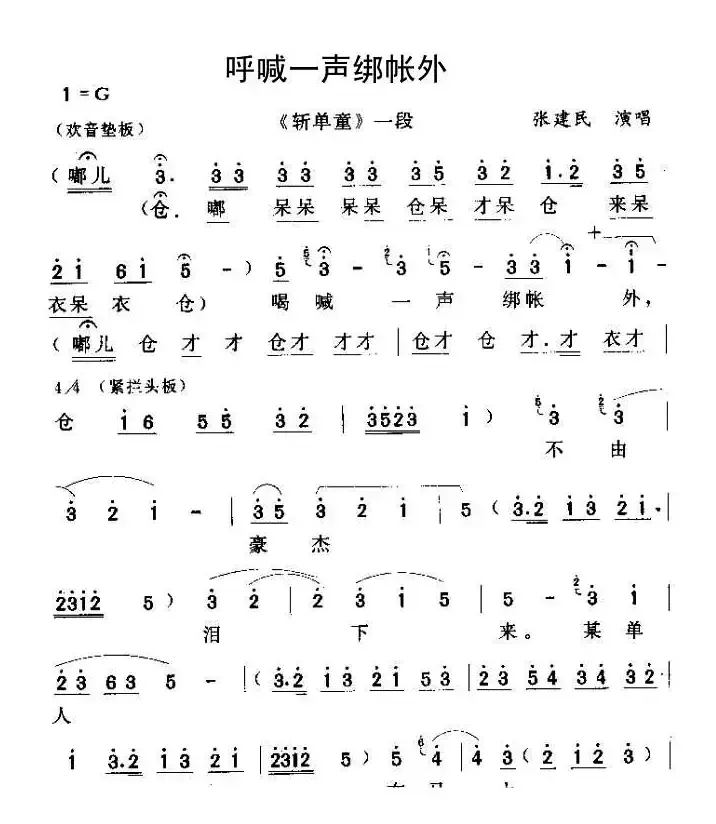 呼喊一声绑帐外
1=G
(欢音垫板) 《斩单童》一段 张建民 演唱
(嘟儿 3. 33 33 33 35 32 1.2 35
(仓. 嘟 呆呆 呆呆 仓呆 才呆 仓 来呆
21 61 5 -) 5 3 - 3 5 - 33 1 - 1 -
衣呆 衣 仓) 喝喊 一 声 绑帐 外,
(嘟儿 仓 才 才 仓才 才才 | 仓才 仓 才.才 衣才 |
4/4 (紧拦头板)
仓 16 55 32 | 3523 1) 3 3 |
不 由
3 2 1 - | 35 3 2 1 | 5 (3.2 13 21. |
豪 杰
2312 5) 3 2 | 2 3 1 5 | 5 - 3 1 |
泪 下 来。 某 单
23 63 5 - | (3.2 13 21 53 | 23 54 34 32 |
人
1 3.2 13 21 | 2312 5) 5 4 | 4 3 (2 12 3) |